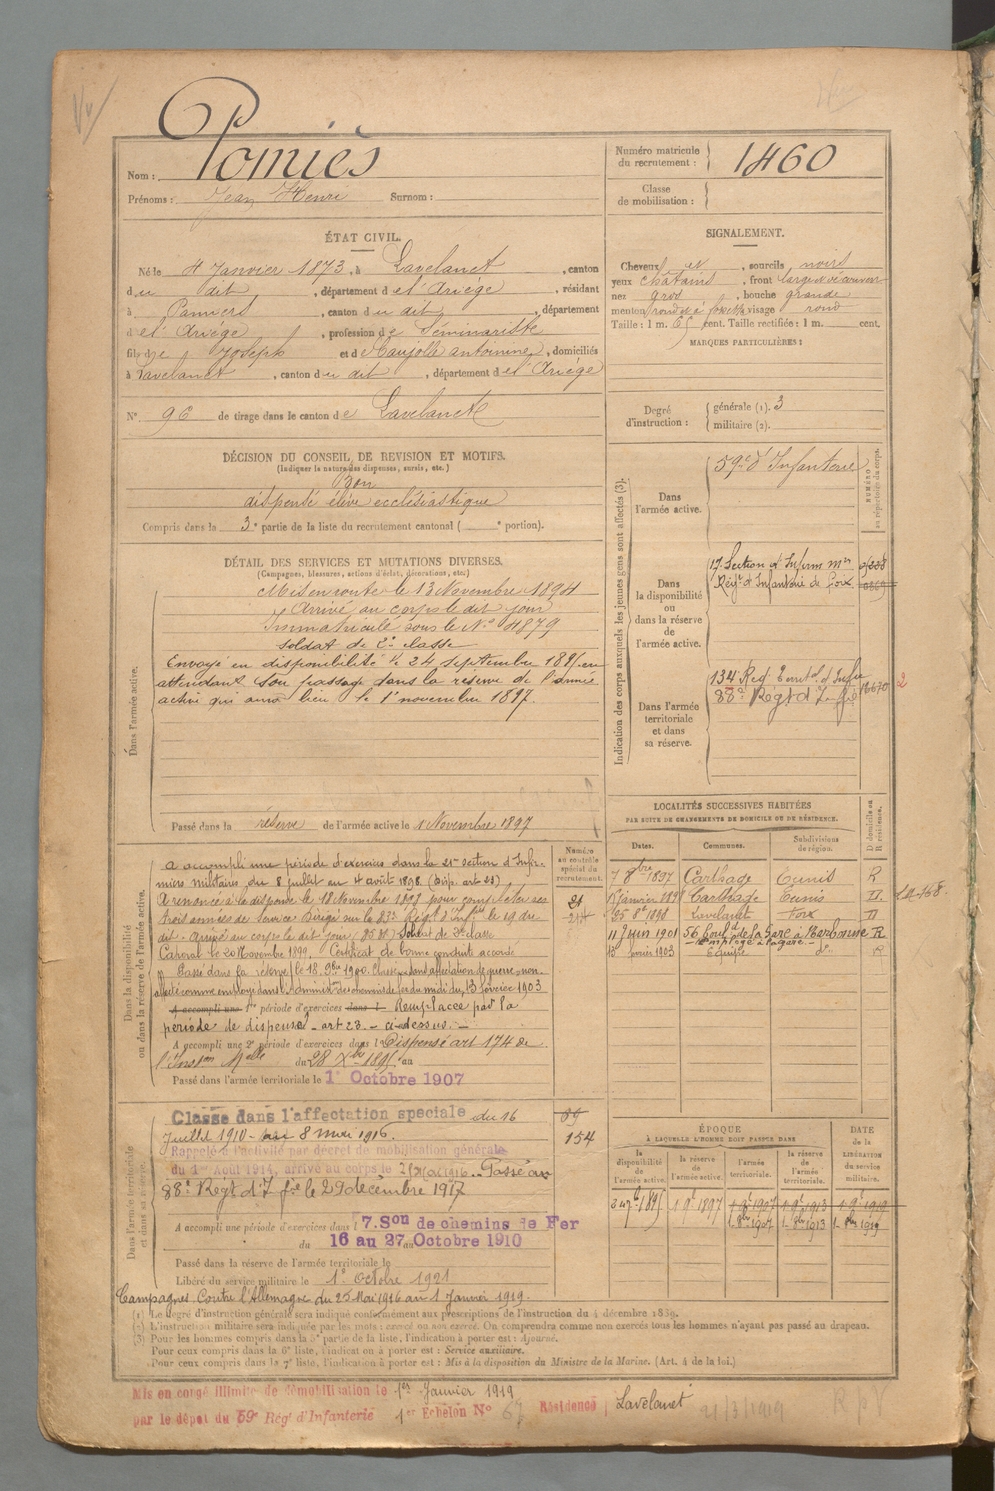 Pomiès
Nom :
Prénoms : Jean Henri Surnom :
Numéro matricule du recrutement : 1460
Classe de mobilisation :
ÉTAT CIVIL.
Né le 4 Janvier 1873, à Lavelanet, canton
du dit, département de l'Ariège, résidant
à Pamiers, canton du dit, département
de l'Ariège, profession de Séminariste
fils de Joseph et de Maujolle antoinine, domiciliés
à Lavelanet, canton du dit, département de l'Ariège
N° 96 de tirage dans le canton de Lavelanet
SIGNALEMENT.
Cheveux et, sourcils noirs
yeux châtains, front large
nez gros, bouche grande
menton rond et à fossette visage rond
Taille : 1 m. 65 cent. Taille rectifiée : 1 m. cent.
MARQUES PARTICULIÈRES :
Degré d'instruction : générale (1). 3
militaire (2).
DÉCISION DU CONSEIL DE REVISION ET MOTIFS.
(Indiquer la nature des dispenses, sursis, etc.)
Bon
dispensé élève ecclésiastique
Compris dans la 3e partie de la liste du recrutement cantonal ( e portion).
DÉTAIL DES SERVICES ET MUTATIONS DIVERSES.
(Campagnes, blessures, actions d'éclat, décorations, etc.)
Dans l'armée active.
Mis en route le 13 Novembre 1894
Arrivé au corps le dit jour
Immatriculé sous le N° 4879
soldat de 2e classe
Envoyé en disponibilité le 24 septembre 1895 en
attendant son passage dans la réserve de l'armée
active qui aura lieu le 1er novembre 1897.
Passé dans la réserve de l'armée active le 1 Novembre 1897
Indication des corps auxquels les jeunes gens sont affectés (3).
NUMÉRO au répertoire du corps.
Dans l'armée active.
59e d'Infanterie
Dans la disponibilité ou dans la réserve de l'armée active.
17. Section d'Infirm mres
Régt d'Infanterie de Foix
Dans l'armée territoriale et dans sa réserve.
134 Reg Territ d'Infie
88e Régt d'Infie
LOCALITÉS SUCCESSIVES HABITÉES
PAR SUITE DE CHANGEMENTS DE DOMICILE OU DE RÉSIDENCE.
Dates. Communes. Subdivisions de région. D domicile ou R résidence.
7 8bre 1897 Carthage Tunis R
Carthage Tunis
25 8e 1898 Lavelanet Foix
11 Juin 1901 56 Bould de la Gare à Narbonne R
Employé à la gare
13 février 1903
Dans la disponibilité ou dans la réserve de l'armée active.
Numéro au contrôle spécial du recrutement.
21
A accompli une période d'exercices dans la 21e section d'Infir-
miers militaires du 8 juillet au 4 août 1898. (Disp. art 23)
A renoncé à la dispense le 18 Novembre 1898 pour compléter ses
trois années de service. Dirigé sur le 83e Régt d'Infie le 19 du
dit. Arrivé au corps le dit jour Soldat de 2e classe
Caporal le 20 Novembre 1899. Certificat de bonne conduite accordé
Passé dans la réserve le 18 9bre 1900. Classé
13 février 1903
A accompli une 1re période d'exercices dans l Remplacée par la
période de dispensé - art 23. - ci-dessus. -
A accompli une 2e période d'exercices dans l Dispensé art 174 de
l'Inston Melle du 28 Xbre 1895 au
Passé dans l'armée territoriale le 1er Octobre 1907
Dans l'armée territoriale et dans sa réserve.
Classé dans l'affectation spéciale du 16
Juillet 1910 au 8 mai 1916.
154
Rappelé à l'activité par décret de mobilisation générale
du 1er Août 1914, arrivé au corps le 25 Mai 1916. Passé au
88e Régt d'Infie le 29 décembre 1917
A accompli une période d'exercices dans l 7. Son de chemins de Fer
du 16 au 27 Octobre 1910
Passé dans la réserve de l'armée territoriale le
Libéré du service militaire le 1er octobre 1921
Campagnes. Contre l'Allemagne du 25 Mai 1916 au 1 Janvier 1919.
ÉPOQUE
À LAQUELLE L'HOMME DOIT PASSER DANS
la disponibilité de l'armée active. la réserve de l'armée active. l'armée territoriale. la réserve de l'armée territoriale.
DATE de la LIBÉRATION du service militaire.
1 9e 1897 1 9e 1907 1 9e 1913 1 9e 1919
1 8bre 1907 1 8bre 1913 1 8bre 1919
(1) Le degré d'instruction générale sera indiqué conformément aux prescriptions de l'instruction du 4 décembre 1889.
(2) L'instruction militaire sera indiquée par les mots : exercé ou non exercé. On comprendra comme non exercés tous les hommes n'ayant pas passé au drapeau.
(3) Pour les hommes compris dans la 5e partie de la liste, l'indication à porter est : Ajourné.
Pour ceux compris dans la 6e liste, l'indication à porter est : Service auxiliaire.
Pour ceux compris dans la 7e liste, l'indication à porter est : Mis à la disposition du Ministre de la Marine. (Art. 4 de la loi.)
Mis en congé illimité de démobilisation le 1er Janvier 1919
par le dépôt du 59e Régt d'Infanterie 1er Echelon N° 67 Résidence Lavelanet 21/3/1919